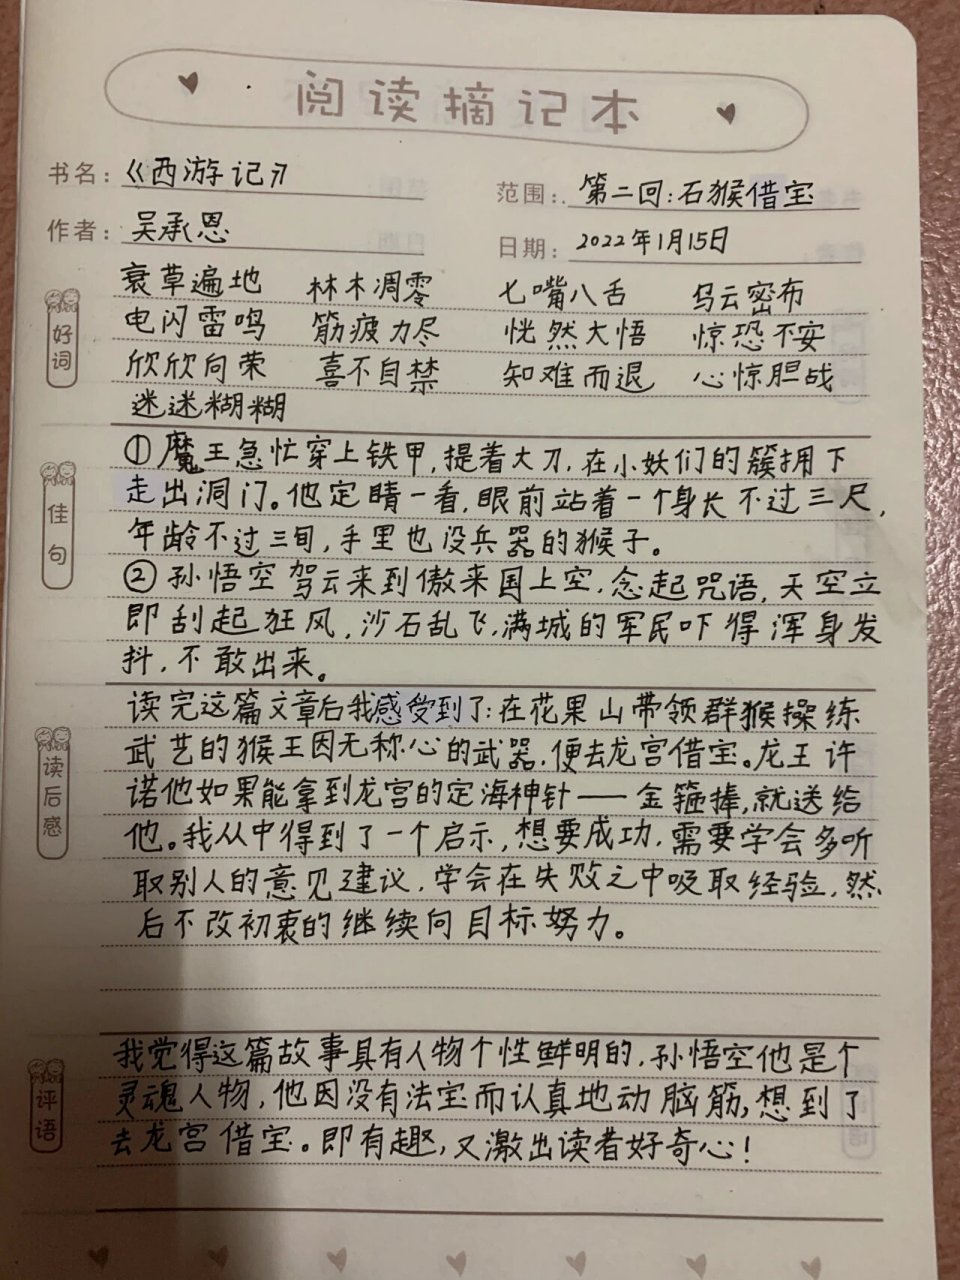 阅读摘记本
书名：《西游记》
范围：第二回：石猴借宝
作者：吴承恩
日期：2022年1月15日
好词
衰草遍地 林木凋零 七嘴八舌 乌云密布
电闪雷鸣 筋疲力尽 恍然大悟 惊恐不安
欣欣向荣 喜不自禁 知难而退 心惊胆战
迷迷糊糊
佳句
①魔王急忙穿上铁甲，提着大刀，在小妖们的簇拥下
走出洞门。他定睛一看，眼前站着一个身长不过三尺，
年龄不过三旬，手里也没兵器的猴子。
②孙悟空驾云来到傲来国上空，念起咒语，天空立
即刮起狂风，沙石乱飞，满城的军民吓得浑身发
抖，不敢出来。
读后感
读完这篇文章后我感受到了：在花果山带领群猴操练
武艺的猴王因无称心的武器，便去龙宫借宝。龙王许
诺他如果能拿到龙宫的定海神针——金箍捧，就送给
他。我从中得到了一个启示，想要成功，需要学会多听
取别人的意见建议，学会在失败之中吸取经验，然
后不改初衷的继续向目标努力。
评语
我觉得这篇故事具有人物个性鲜明的，孙悟空他是个
灵魂人物，他因没有法宝而认真地动脑筋，想到了
去龙宫借宝。即有趣，又激出读者好奇心！